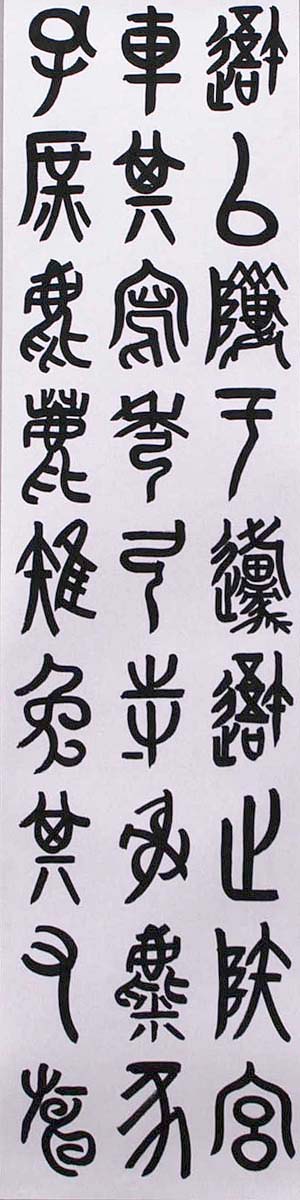 吾以隮于邍吾止陕宮
車其寫秀弓寺射麋豕
孔庶麀鹿雉兔其又旃